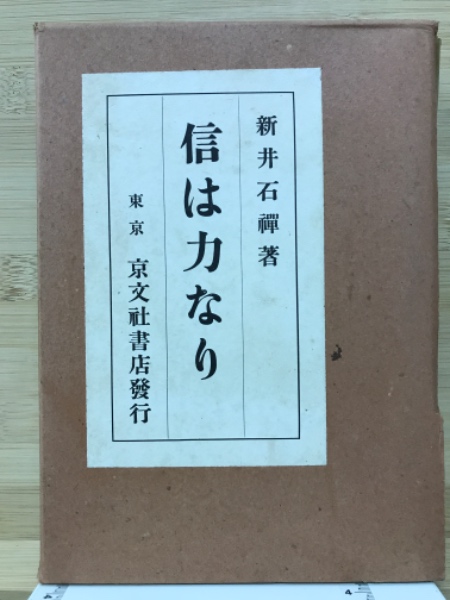 新井石禪著
信は力なり
東京 京文社書店發行
4
4